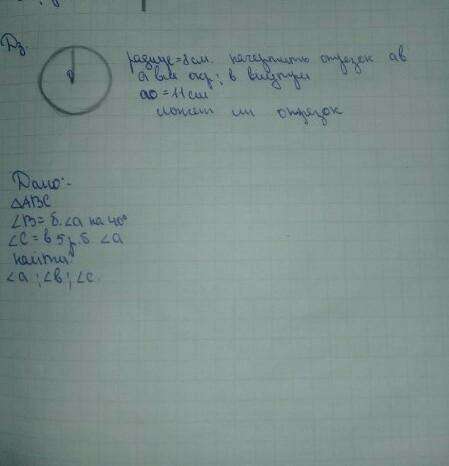 Дз.
радиус=8см. начертить отрезок ав
а вне окр; в внутри
ао=11см
может ли отрезок
Дано:
△ABC
∠B=б.∠а на 40°
∠C=в 5 р.б ∠а
найти:
∠а;∠в;∠с.